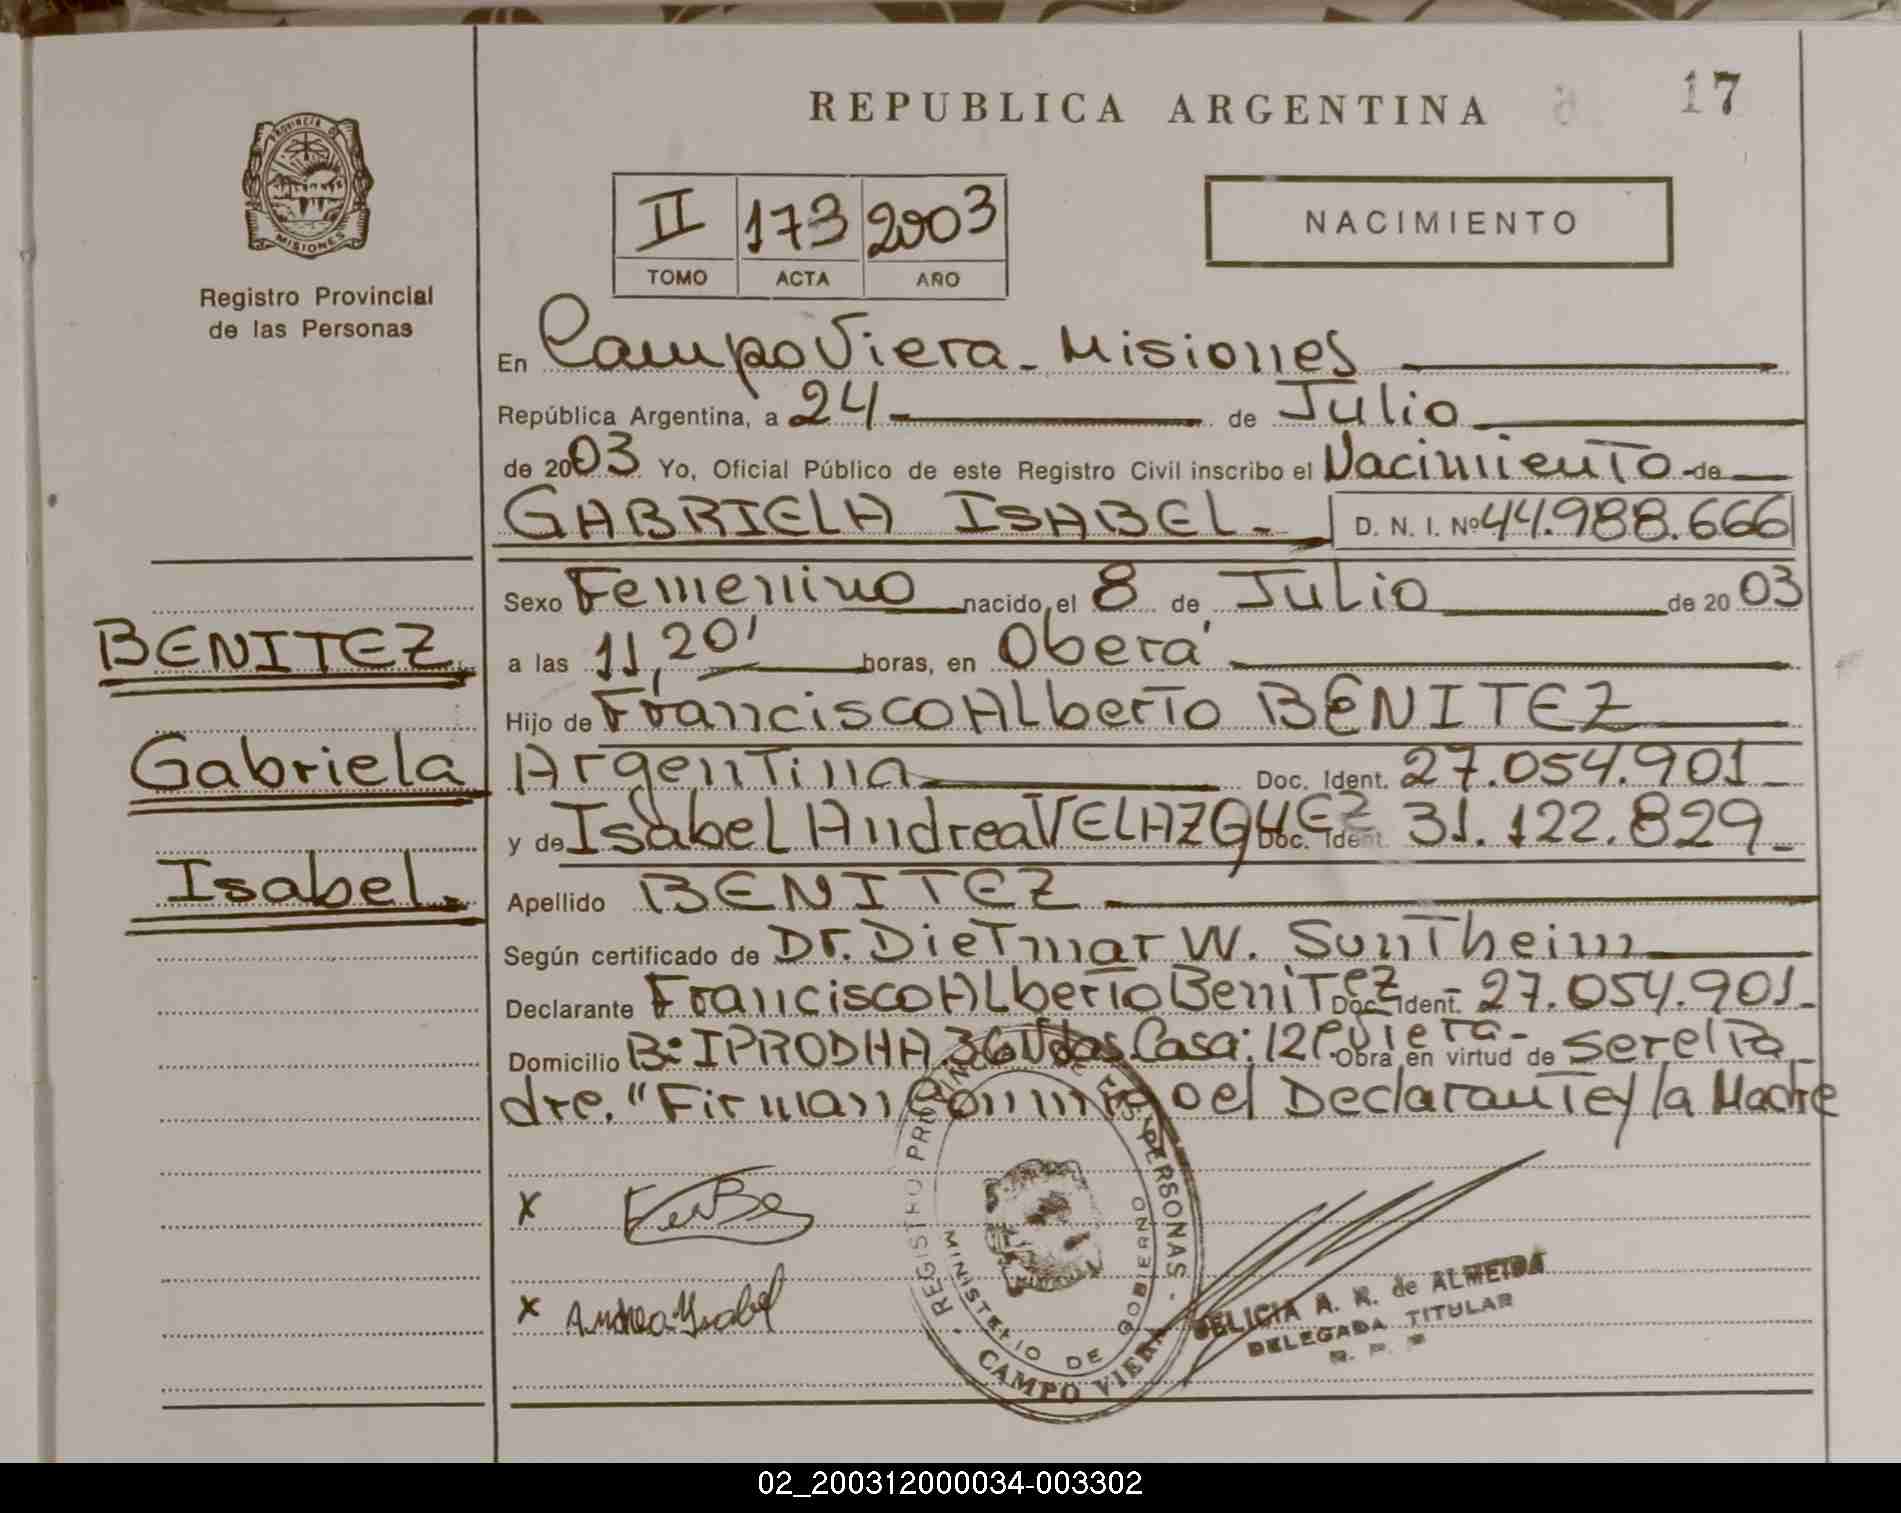 REPUBLICA ARGENTINA
17
PROVINCIA DE
MISIONES
Registro Provincial
de las Personas
II 173 2003
TOMO ACTA AÑO
NACIMIENTO
En Campo Viera - Misiones
República Argentina, a 24 de Julio
de 2003 Yo, Oficial Público de este Registro Civil inscribo el Nacimiento de
GABRIELA ISABEL. D. N. I. Nº 44.988.666
Sexo Femenino nacido el 8 de Julio de 20 03
BENITEZ
a las 11,20' horas, en Oberá
Hijo de Francisco Alberto BENITEZ
Gabriela
Argentina Doc. Ident. 27.054.901-
y de Isabel Andrea VELAZQUEZ Doc. Ident. 31.122.829-
Isabel.
Apellido BENITEZ
Según certificado de Dr. Dietmar W. Suntheim
Declarante Francisco Alberto Benitez Doc. Ident. 27.054.901-
Domicilio Bº IPRODHA 36 Vdas. Casa: 12 C. Viera - Obra en virtud de ser el Pa
dre. "Firman Conmigo el Declarante y la Madre
X
X Andrea Ysabel
REGISTRO PROVINCIAL DE LAS PERSONAS
MINISTERIO DE GOBIERNO
CAMPO VIERA
FELICIA A. R. de ALMEIDA
DELEGADA TITULAR
R. P. P.
02_200312000034-003302